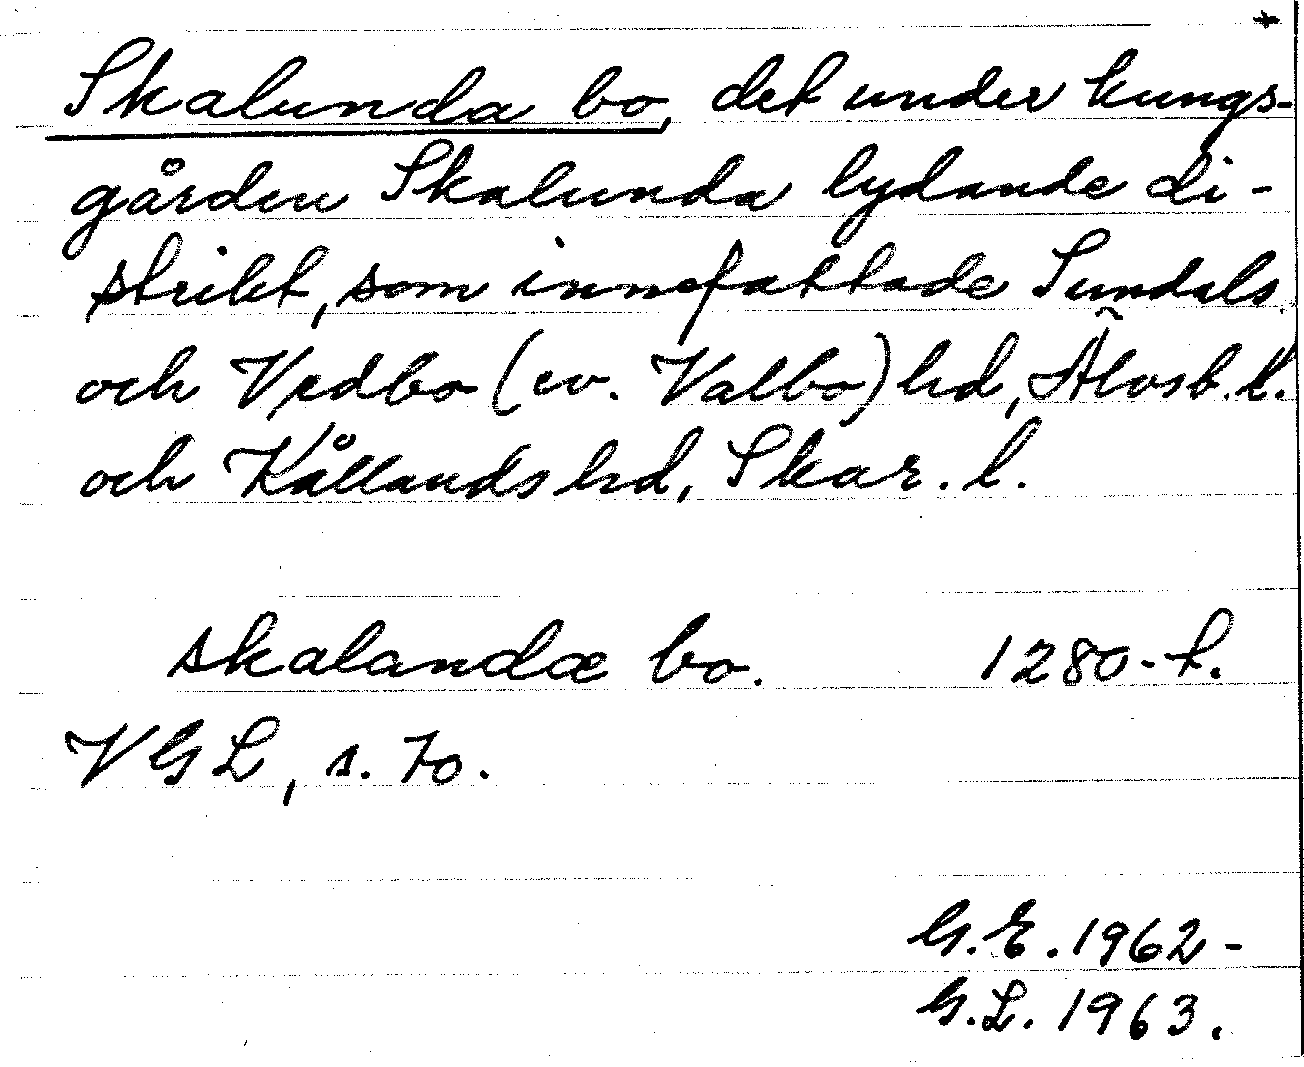 Skalunda bo, det under kungs-
gården Skalunda lydande di-
strikt, som innefattade Sundals
och Vedbo (ev. Valbo) hd, Älvsb. l.
och Kållands hd, Skar. l.
skalandæ bo. 1280-t.
VGL, s. 70.
G.E. 1962-
G.L. 1963.